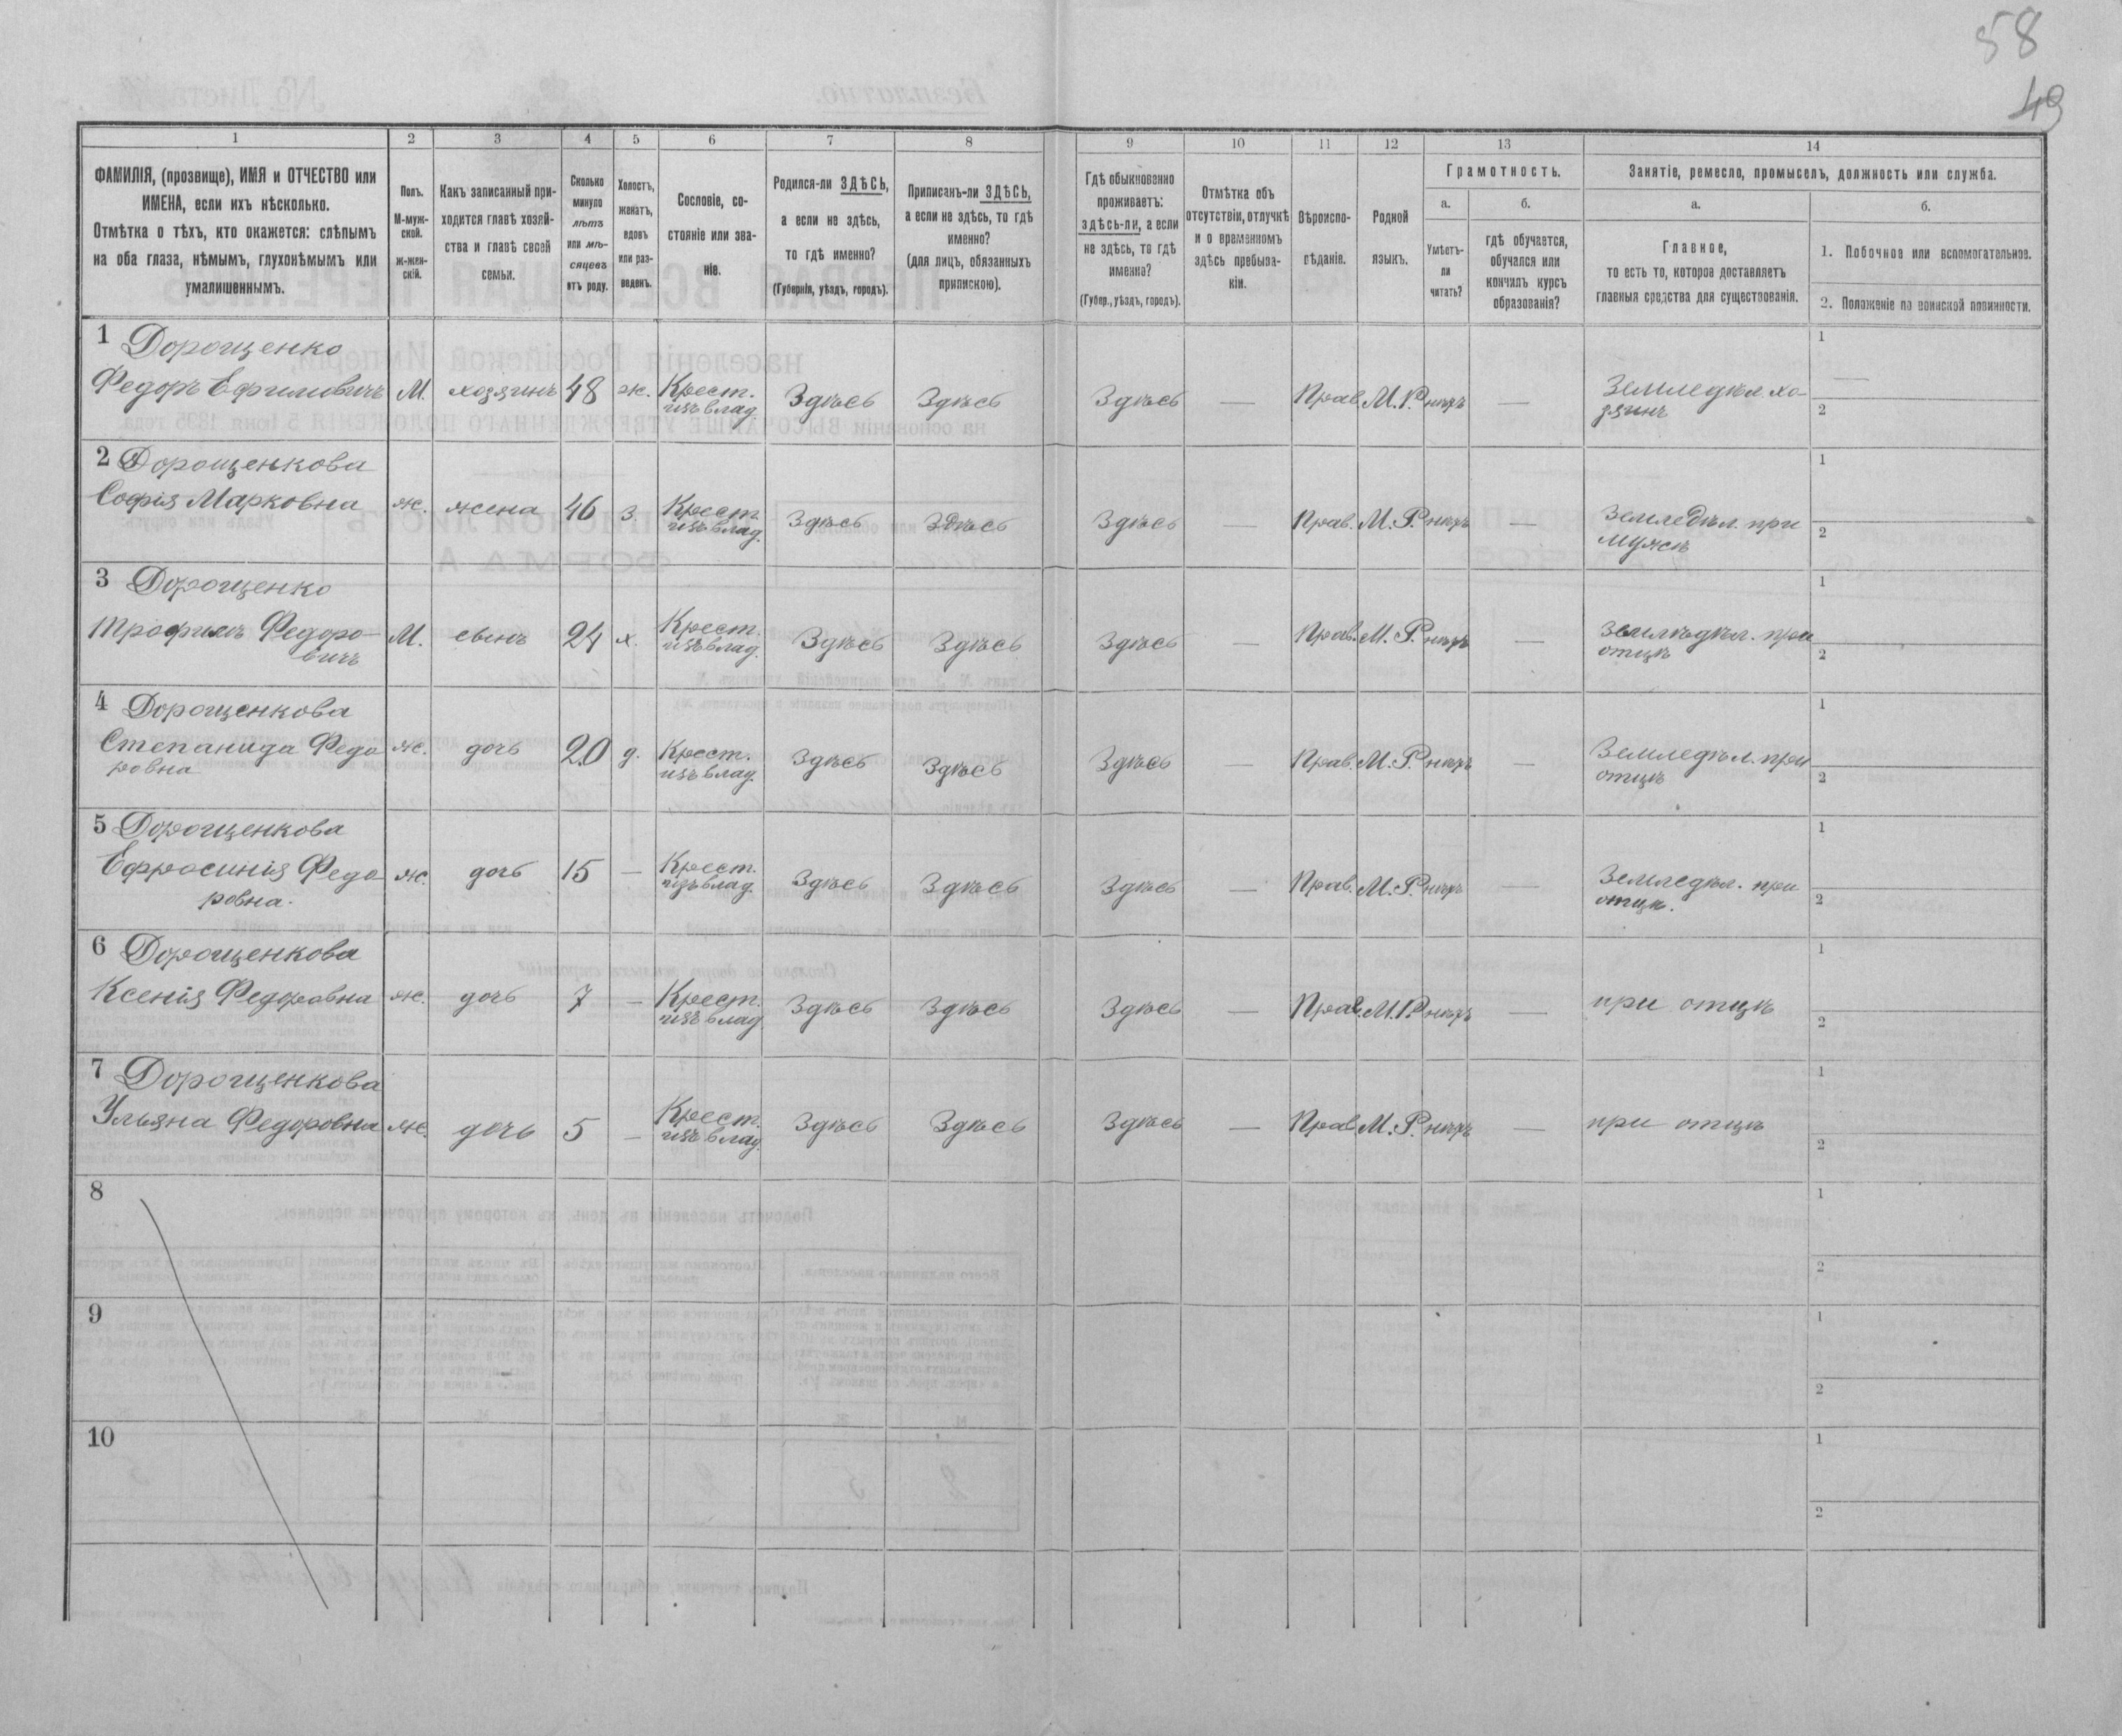 58
49
1 2 3 4 5 6 7 8 9 10 11 12 13 14
ФАМИЛІЯ, (прозвище), ИМЯ и ОТЧЕСТВО или
ИМЕНА, если ихъ нѣсколько.
Отмѣтка о тѣхъ, кто окажется: слѣпымъ
на оба глаза, нѣмымъ, глухонѣмымъ или
умалишеннымъ.
Полъ.
М-муж-
ской.
ж-жен-
скій.
Какъ записанный при-
ходится главѣ хозяй-
ства и главѣ своей
семьи.
Сколько
минуло
лѣтъ
или мѣ-
сяцевъ
отъ роду.
Холостъ,
женатъ,
вдовъ
или раз-
веденъ.
Сословіе, со-
стояніе или зва-
ніе.
Родился-ли ЗДѢСЬ,
а если не здѣсь,
то гдѣ именно?
(Губернія, уѣздъ, городъ).
Приписанъ-ли ЗДѢСЬ,
а если не здѣсь, то гдѣ
именно?
(для лицъ, обязанныхъ
припискою).
Гдѣ обыкновенно
проживаетъ:
здѣсь-ли, а если
не здѣсь, то гдѣ
именно?
(Губер., уѣздъ, городъ).
Отмѣтка объ
отсутствіи, отлучкѣ
и о временномъ
здѣсь пребыва-
ніи.
Вѣроиспо-
вѣданіе.
Родной
языкъ.
Грамотность.
а.
Умѣетъ-
ли
читать?
б.
гдѣ обучается,
обучался или
кончилъ курсъ
образованія?
Занятіе, ремесло, промыселъ, должность или служба.
а.
Главное,
то есть то, которое доставляетъ
главныя средства для существованія.
б.
1. Побочное или вспомогательное.
2. Положеніе по воинской повинности.
1 Дорощенко
Федоръ Ефимовичъ М. хозяинъ 48 ж. Крест. Здѣсь Здѣсь Здѣсь — Прав. М.Р. нѣтъ — Земледѣл. хо-
изъ влад. зяинъ
1
2
2 Дорощенкова
Софія Марковна ж. жена 46 з. Крест. Здѣсь Здѣсь Здѣсь — Прав. М.Р. нѣтъ — Земледѣл. при
изъ влад. мужѣ
1
2
3 Дорощенко
Трофимъ Федоро- М. сынъ 24 х. Крест. Здѣсь Здѣсь Здѣсь — Прав. М.Р. нѣтъ — Земледѣл. при
вичъ изъ влад. отцѣ
1
2
4 Дорощенкова
Степанида Федо ж. дочь 20 д. Крест. Здѣсь Здѣсь Здѣсь — Прав. М.Р. нѣтъ — Земледѣл. при
ровна изъ влад. отцѣ
1
2
5 Дорощенкова
Ефросинія Федо ж. дочь 15 — Крест. Здѣсь Здѣсь Здѣсь — Прав. М.Р. нѣтъ — Земледѣл. при
ровна. изъ влад. отцѣ.
1
2
6 Дорощенкова
Ксенія Федоровна ж. дочь 7 — Крест. Здѣсь Здѣсь Здѣсь — Прав. М.Р. нѣтъ — при отцѣ
изъ влад.
1
2
7 Дорощенкова
Ульяна Федоровна ж. дочь 5 — Крест. Здѣсь Здѣсь Здѣсь — Прав. М.Р. нѣтъ — при отцѣ
изъ влад.
1
2
8
1
2
9
1
2
10
1
2